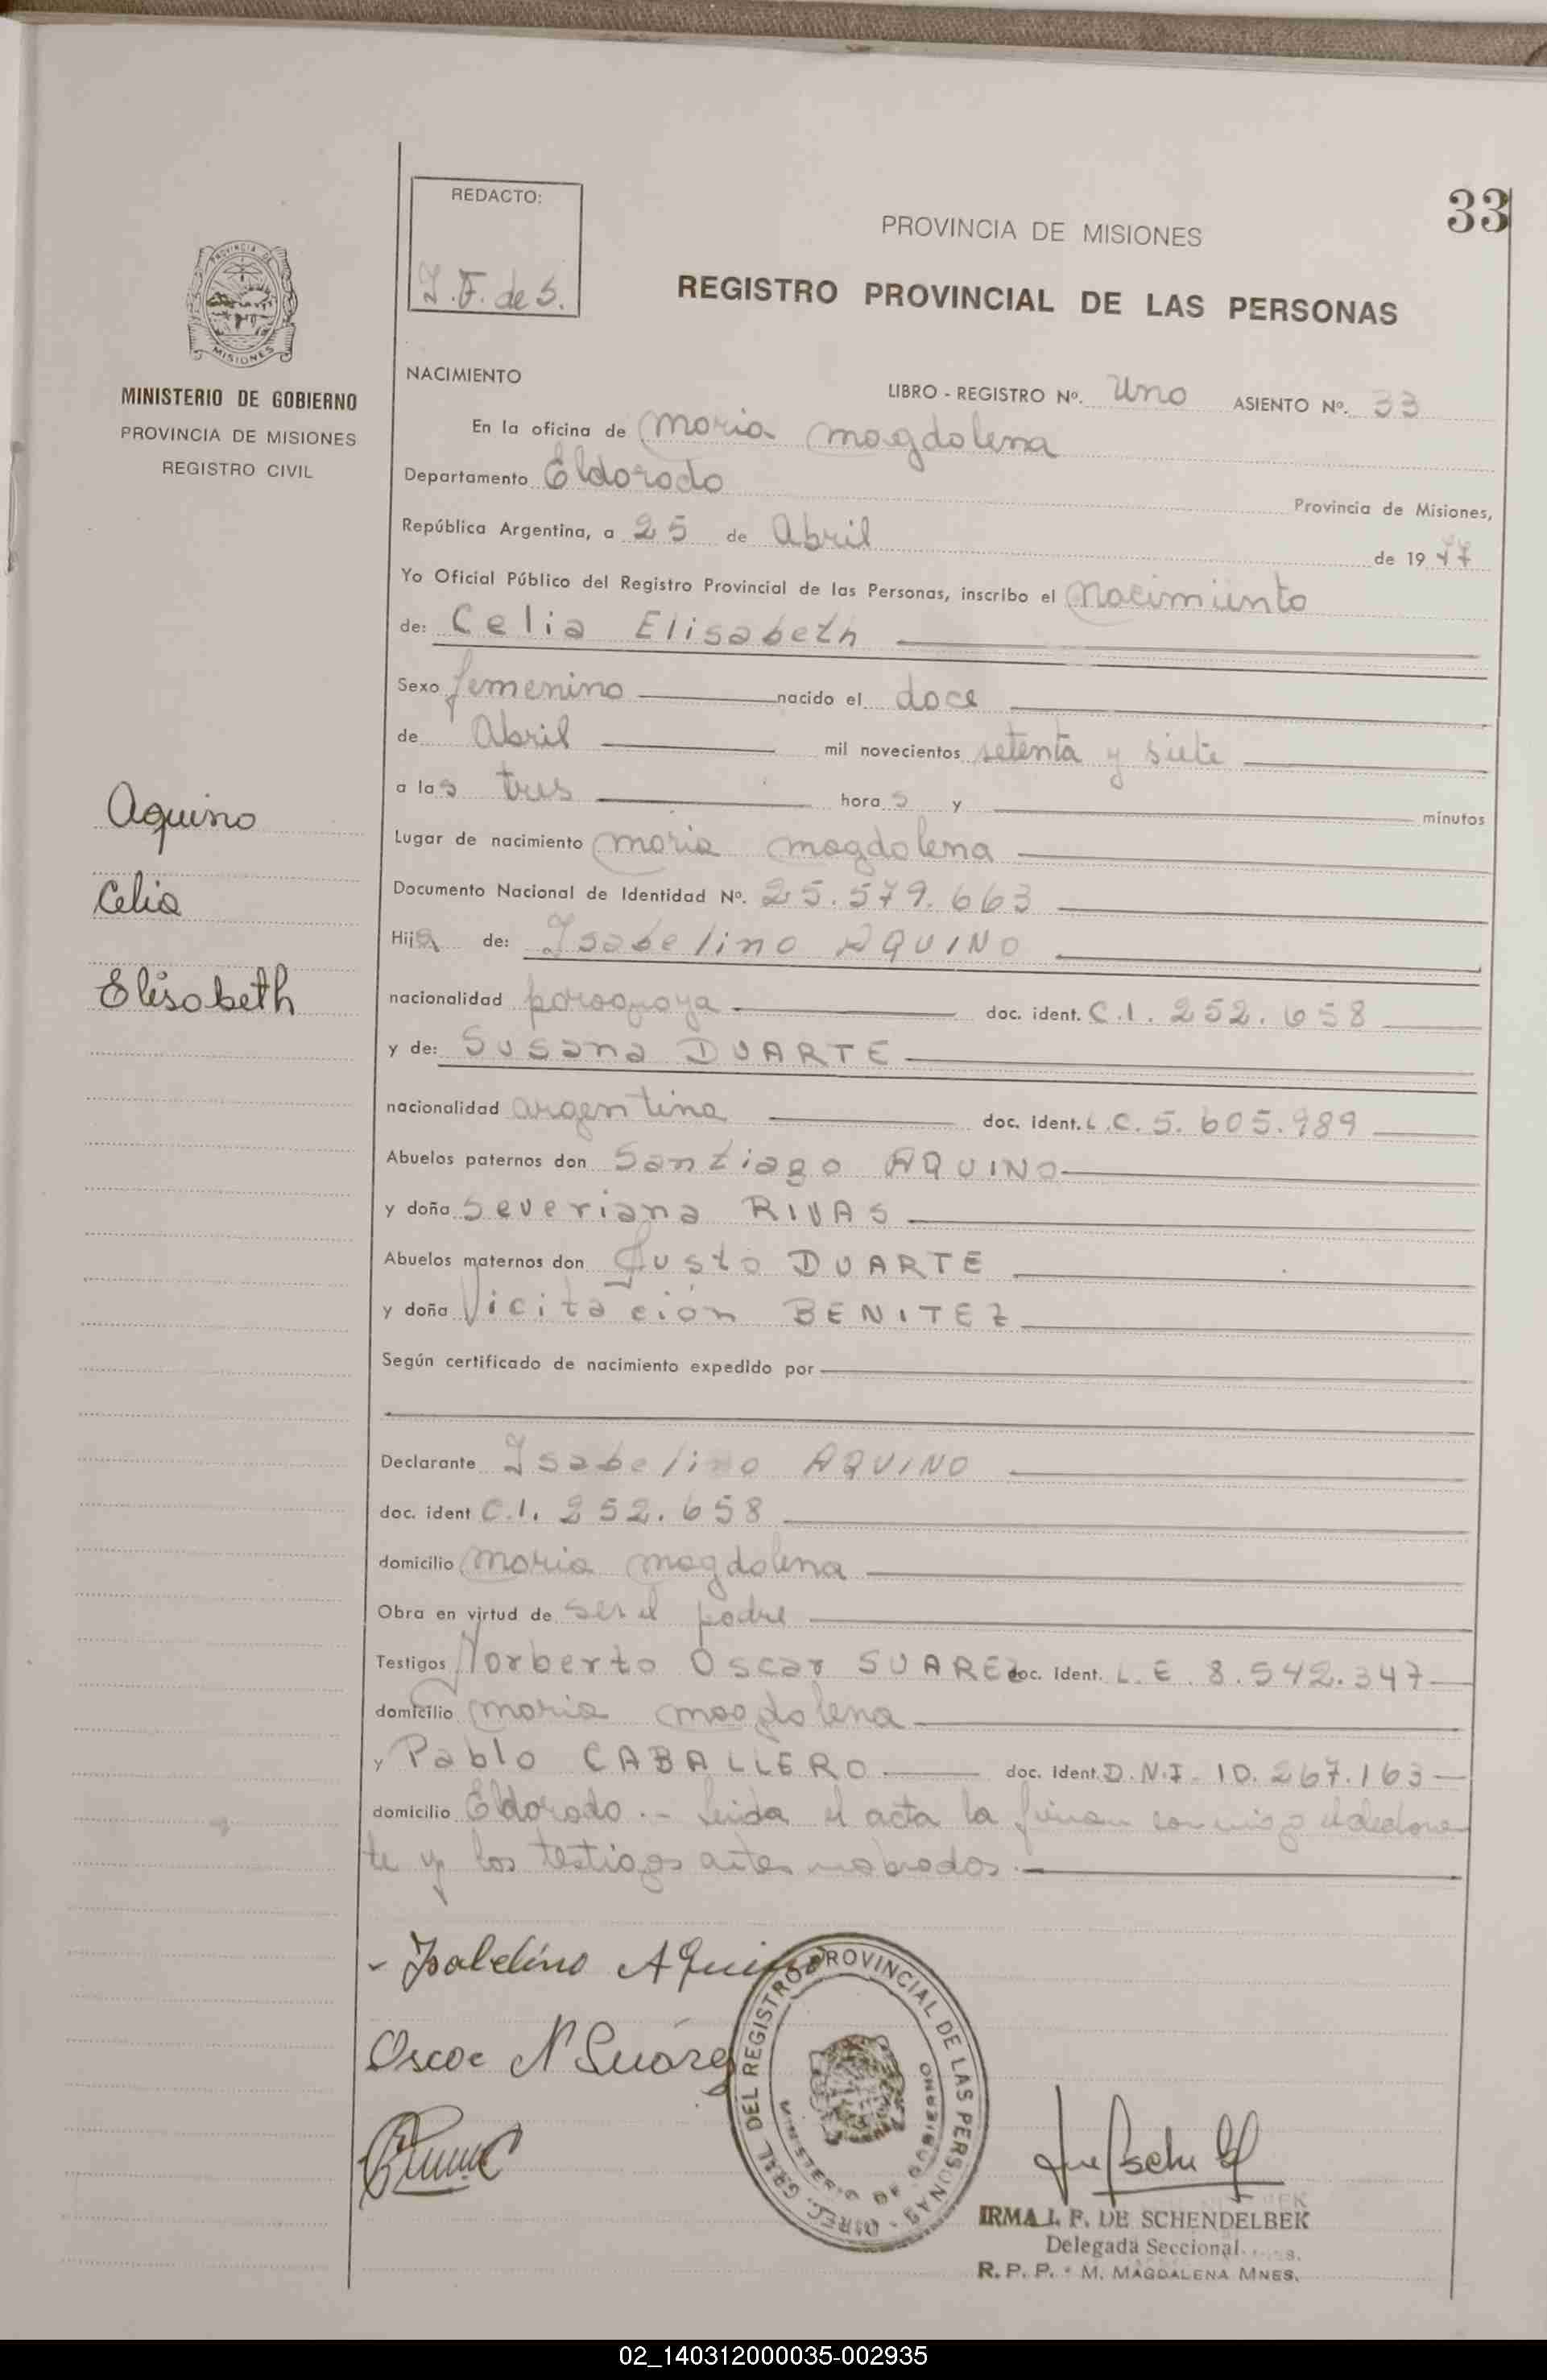 33
REDACTO:
I.F. de S.
PROVINCIA DE MISIONES
REGISTRO PROVINCIAL DE LAS PERSONAS
PROVINCIA DE MISIONES
MINISTERIO DE GOBIERNO
PROVINCIA DE MISIONES
REGISTRO CIVIL
Aquino
Celia
Elisabeth
NACIMIENTO
LIBRO - REGISTRO Nº. Uno ASIENTO Nº. 33
En la oficina de Maria Magdalena
Departamento Eldorado Provincia de Misiones,
República Argentina, a 25 de Abril de 1977
Yo Oficial Público del Registro Provincial de las Personas, inscribo el Nacimiento
de: Celia Elisabeth
Sexo femenino nacido el doce
de Abril mil novecientos setenta y siete
a las tres horas y minutos
Lugar de nacimiento Maria Magdalena
Documento Nacional de Identidad Nº. 25.579.663
Hija de: Isabelino AQUINO
nacionalidad paraguaya doc. ident. C.I. 252.658
y de: Susana DUARTE
nacionalidad argentina doc. ident. L.C. 5.605.989
Abuelos paternos don Santiago AQUINO
y doña Severiana RIVAS
Abuelos maternos don Justo DUARTE
y doña Vicitación BENITEZ
Según certificado de nacimiento expedido por
Declarante Isabelino AQUINO
doc. ident C.I. 252.658
domicilio Maria Magdalena
Obra en virtud de ser el padre
Testigos Norberto Oscar SUAREZ doc. Ident. L.E. 8.542.347
domicilio Maria Magdalena
y Pablo CABALLERO doc. Ident. D.N.I. 10.267.163
domicilio Eldorado.- Leida el acta la firman conmigo el declaran
te y los testigos antes
Isabelino Aquino
Oscar N Suárez
DIREC. GRAL. DEL REGISTRO PROVINCIAL DE LAS PERSONAS
MINISTERIO DE GOBIERNO
IRMA I. F. DE SCHENDELBEK
Delegada Seccional
R. P. P. - M. MAGDALENA MNES.
02_140312000035-002935